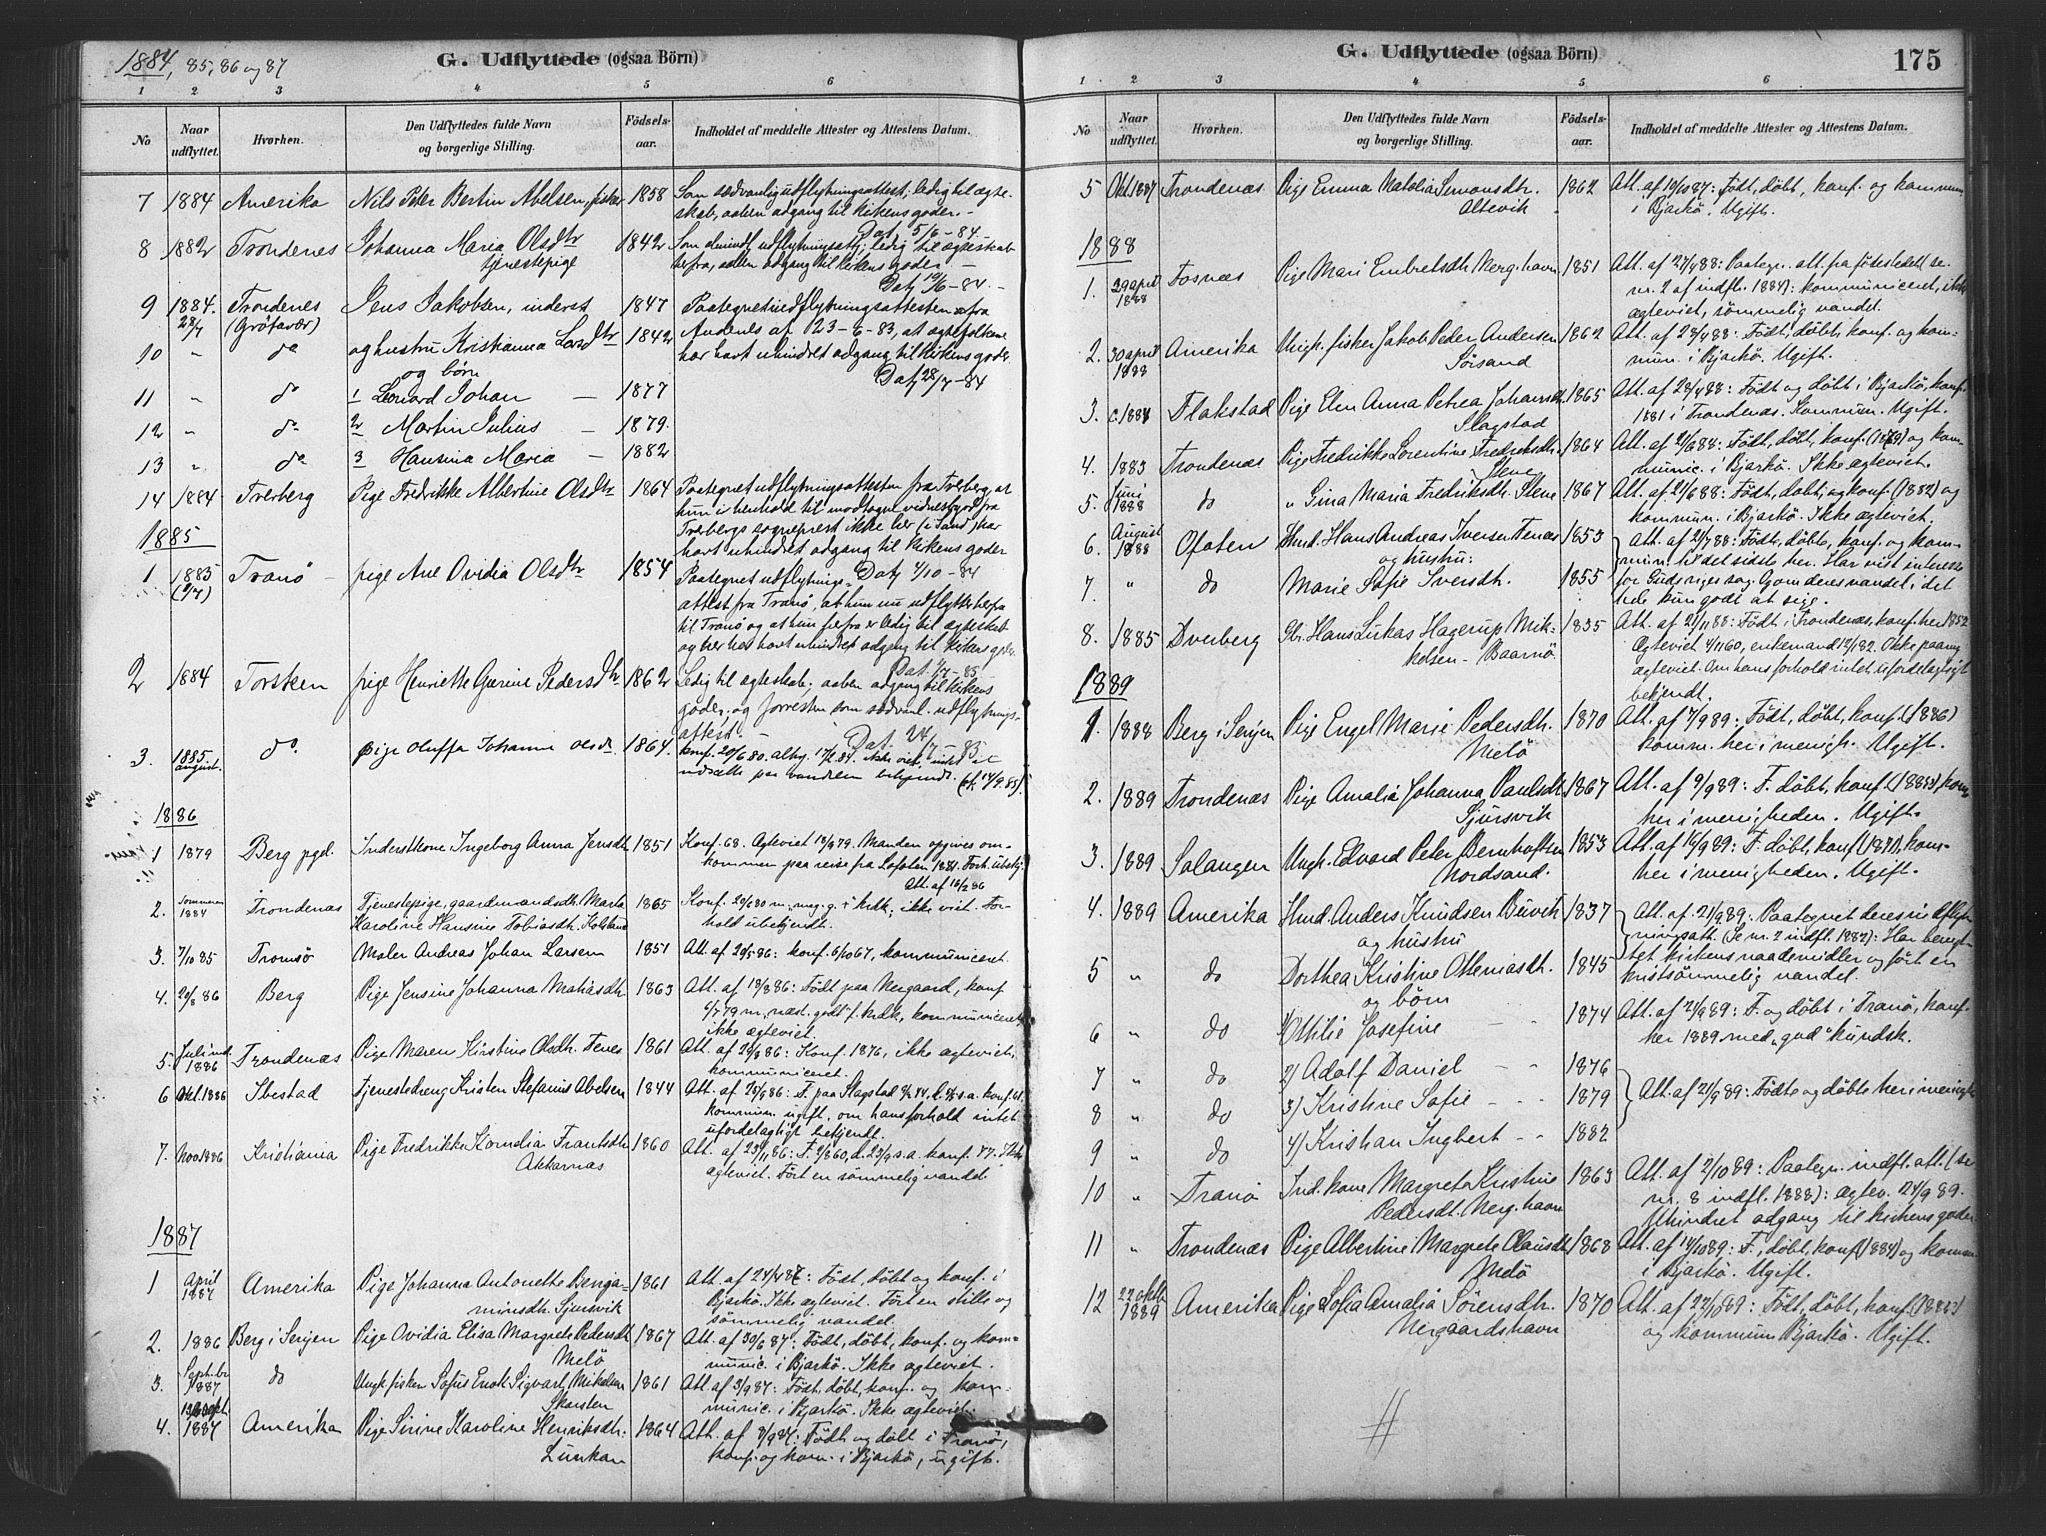 1884, 85, 86 og 87
G. Udflyttede (ogsaa Börn)
1 2 3 4 5 6
No
Naar udflyttet.
Hvorhen.
Den Udflyttedes fulde Navn og borgerlige Stilling.
Födsels-aar.
Indholdet af meddelte Attester og Attestens Datum.
7 1884 Amerika Nils Peter Bertin Abelsen, fisker 1858 Som sædvanlig udflytningsattest, ledig til ægte-
skab, aaben adgang til kirkens goder. -
Dat. 5/6 - 84.
8 1882 Trondenes Johanna Maria Olsdtr 1842 Som almindl. udflytningsatt; ledig til ægteskab
tjenestepige herfra, aaben adgang til kirkens goder. -
Dat. 14/6 - 84. -
9 1884. Trondenes Jens Jakobsen, inderst 1847 Paategnet udflytningsattesten fra
28/7 (Gröfavær)
10 " do og hustru Kristianna Larsdtr 1842 Andenes af 23-6-83, at ægtefolkene
har havt uhindret adgang til kirkens goder.
og børn
Dat. 28/7 - 84
11 " do 1 Leonard Johan - 1877
12 " do 2 Martin Julius - 1879.
13 " do 3 Hansina Maria - 1882
14 1884 Tverberg Pige Fredrikke Albertine Olsdtr 1864 Paategnet udflytningsattesten fra Tverberg, at
hun i henhold til modtagne vidnesbyrd fra
Tverbergs sogneprest ikke her (i Sand) har
havt uhindret adgang til kirkens goder
Dat. 4/10 - 84
1885
1 1883 Tranö - pige Ane Ovidia Olsdtr 1854 Paategnet udflytnings-
attest fra Tranö, at hun nu udflytter herfra
til Tranö og at hun herfra er ledig til ægteskab
og her har havt uhindret adgang til kirkens goder.
Dat. 1/7 - 85
2 1884 Torsken pige Henriette Gjerine Pedersdtr 1862 Ledig til ægteskab; aaben adgang til kirkens
goder, og forresten som sædvanl. udflytnings-
attest. - Dat. 24/7 - 83
3. 1885 august. do. pige Oluffa Johanna Olsdtr 1864. konf. 20/6 80. altg. 17/2 84. ikke viet. intet at
udsætte paa vandelen bekjendt. (d. 14/9. 85).
1886
1 1879 Berg pgd. Inderstkone Ingeborg Anna Jensdtr 1851 Konf. 68. Ægteviet 18/9 79. Manden opgives om-
kommen paa reise fra Lofoten 1881. Forh. ubekj.
Att. af 16/2 86
2. Sommeren 1884 Trondenæs Tjenestepige, gaardmandsdtr. Marta 1865 Konf. 20/6 80 m. meg. g. + krdk., ikke viet. For-
Karoline Hansine Tobiasdtr. Kolsland hold ubekjendt.
3. 7/10 85 Tromsö Maler Andreas Johan Larsen 1851 Att. af 20/5 86: konf. 6/10 67, kommuniceret.
4. 20/8 86 Berg Pige Jensine Johanna Matiasdtr 1863 Att. af 18/8 86: Födt paa Nergaard, konf.
6/7 79 m. næst. godt f. krdk, kommuniceret,
ikke ægteviet.
5. Juli md. 1886 Trondenæs Pige Maren Kirstine Olsdtr. Fenes 1861 Att. af 20/8 86: Konf. 1876, ikke ægteviet,
kommuniceret.
6 Okt. 1886 Ibestad Tjenestedreng Kristen Stefanus Abelsen 1844 Att. af 25/9 86: F. paa Slagstad
kommun. ugift, om hans forhold intet
ufordelagtigt bekjendt.
7. Nov. 1886 Kristiania Pige Fredrikke Kornelia Frantsdtr 1860 Att. af 23/11 86: F. 2/8 60, d. 23/9 s.a. konf. 77. Ikke
Akkarnæs ægteviet. Fört en sömmelig vandel.
1887
1 April 1887 Amerika Pige Johanna Antonette Benja- 1861 Att. af 24/4 87: Födt, döbt og konf. i
minsdtr. Sjursvik Bjarkö. Ikke ægteviet. Fört en stille og
sömmelig vandel.
2. 1886 Berg i Senjen Pige Ovidia Elisa Margrete Pedersdtr 1867 Att. af 30/6 87: Födt, döbt, konf. og kom-
Melö munic. i Bjarkö. Ikke ægteviet.
3. Septbr 1887 do Ungk. fisker Sofus Enok Sigvart Mikalsen 1861 Att. af 3/9 87: Födt, döbt, konf. og kom-
Skarsten munic. i Bjarkö. Ikke ægteviet.
4. Sept. 1887 Amerika Pige Sirine Karoline Henriksdtr. 1864 Att. af 8/9 87: Födt og döbt i Tranö,
Lunkan konf. og kom. i Bjarkö, ugift.
G. Udflyttede (ogsaa Börn)
175
1. 2 3 4 5 6
No
Naar udflyttet.
Hvorhen.
Den Udflyttedes fulde Navn og borgerlige Stilling.
Födsels-aar.
Indholdet af meddelte Attester og Attestens Datum.
5 Okt. 1887 Trondenæs Pige Emma Natalia Simonsdtr. 1862 Att. af 19/10 87: Födt, döbt, konf. og kommun.
Altevik i Bjarkö. Ugift.
1888
1. 29 april 1888 Fosnæs Pige Mari Embretsdtr Nerg.havn 1851 Att. af 27/4 88: Paategn. att. fra födestedet (se
nr. 2 af indfl. 1884): kommuniceret, ikke
ægteviet, sömmelig vandel.
2. 30 april 1888 Amerika Ungk. fisker Jakob Peder Andersen 1862 Att. af 28/4 88: Födt, döbt, konf. og kom-
Sörsand mun. i Bjarkö. Ugift.
3. Flakstad Pige Elen Anna Petrea Johansdtr. 1865 Att. af 28/4 88: Födt og döbt i Bjarkö, konf.
Slagstad 1881 i Trondenæs. Kommun. Ugift.
4. 1883 Trondenæs Pige Fredrikke Lorentine Fredriksdtr. 1864 Att. af 21/6 88: Födt, döbt, konf. (1879) og kom-
Stene munic. i Bjarkö. Ikke ægteviet.
5. Juni 1888 do " Gina Maria Fredriksdtr. Stene 1867 Att. af 21/6 88: Födt, döbt, og konf. (1882) og
kommun. i Bjarkö. Ikke ægteviet.
6. August 1888 Ofoten Husmd. Hans Andreas Iversen Fenæs 1853 Att. af 21/7 88: Födt, döbt, konf. og kom-
og hustru: mun. til det sidste her. Har vist interesse
7. " do Marie Sofie Iversdtr. 1855 for Guds riges sag. Gom deres vandel i det
hele kun godt at sige.
8. 1885 Dverberg Hans Lukas Hagerup Mik- 1835 Att. af 21/11 88: Födt i Trondenæs, konf. her 1852.
kelsen - Baarnö Ægteviet 4/11 60, enkemand 12/1 82. Ikke paany
ægteviet. Om hans forhold intet ufordelagtigt
bekjendt.
1889
1. 1888 Berg i Senjen Pige Engel Marie Pedersdtr. 1870 Att. af 7/9 89: Födt, döbt, konf. (1886)
Melö komm. her i menigh. Ugift.
2. 1889 Trondenæs Pige Amalia Johanna Paulsdtr. 1867 Att. af 9/9 89: F. döbt, konf. (1883), kom.
Sjursvik her i menigheden. Ugift.
3. 1889 Salangen Ungk. Edvard Peter Bernhoftsen 1853 Att. af 16/9 89: F. döbt, konf. (1871), kom-
Nordsand. her i menigheden. Ugift.
4. 1889 Amerika Husmd. Anders Knudsen Buvik 1837 Att. af 21/9 89: Paategnet deres udflyt-
og hustru ningsatt. (Se nr. 2 indfl. 1882): Har benyt-
5 " do Dorthea Kristine Otteniasdtr. 1845 tet kirkens naademidler og fört en
og börn kristsömmelig vandel.
6 " do 1) Otilie Josefine - 1874 Att. af 21/9 89: F. og döbt i Tranö, konf.
her 1889 med "god" kundsk.
7 " do 2) Adolf Daniel - - 1876
8 " do 3) Kristine Sofie - - 1879 Att. af 21/9 89: Födte og döbte her i menigh.
9 " do 4) Kristian Ingbert - - 1882
10 " Tranö Ind. kone Margrete Kristine 1863 Att. af 2/10 89: Paategn. indfl. att. (se
Pedersdtr. Nerg.havn nr. 8 indfl. 1888): ægtev. 24/9 89.
Uhindret adgang til kirkens goder
11 " Trondenæs Pige Albertine Margrete Clausdtr 1868 Att. af 14/10 89: F., döbt, konf. (1884) og komm.
Melö i Bjarkö. Ugift.
12 22 oktbr 1889 Amerika Pige Sofia Amalia Sörensdtr. 1870 Att. af 22/10 89: Födt, döbt, konf. (1885)
Nergaardshavn og kommun Bjarkö. Ugift.